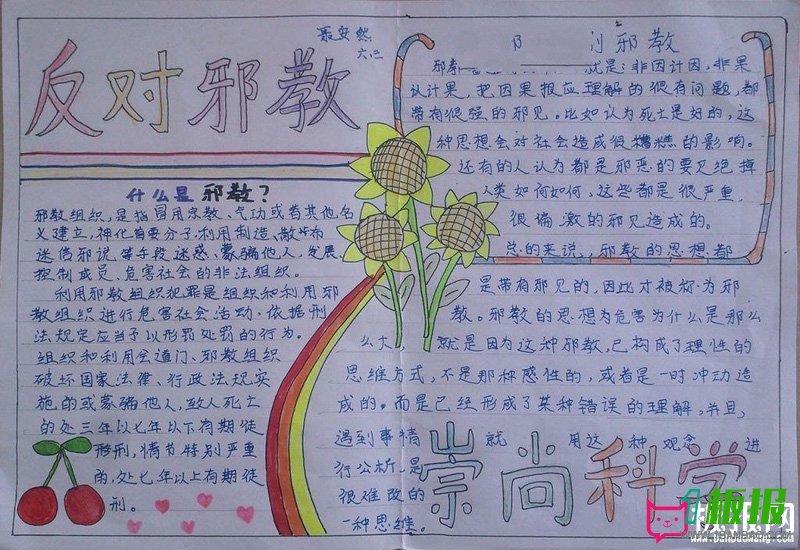 反对邪教
聂安然
六.三
什么是邪教?
邪教组织,是指冒用宗教、气功或者其他名
义建立,神化首要分子,利用制造、散布
迷信邪说等手段迷惑、蒙骗他人,发展
控制成员、危害社会的非法组织。
利用邪教组织犯罪是组织和利用邪
教组织进行危害社会活动.依据刑
法规定应当予以形罚处罚的行为。
组织和利用会道门、邪教组织
破坏国家法律、行政法规实
施的或蒙骗他人,致人死亡
的处三年以七年以下有期徒
形刑,情节特别严重
的,处七年以上有期徒
刑。
邪教
邪教 就是:非因计因,非果
认计果,把因果报应理解的很有问题,都
带有很强的邪见。比如认为死亡是好的,这
种思想会对社会造成很糟糕的影响。
还有的人认为都是邪恶的要见绝掉
人类如何如何,这些都是很严重,
很偏激的邪见造成的。
总的来说,邪教的思想都
是带有邪见的,因此才被称为邪
教。邪教的思想为危害为什么是那么
么大 就是因为这种邪教,已构成了理性的
思维方式,不是那种感性的,或者是一时冲动造
成的。而是已经形成了某种错误的理解,并且,
遇到事情 就 用这 种 观念 进
行分析,是
很难改的
一种思维。
崇尚科学
板报网
www.banbaowang.com